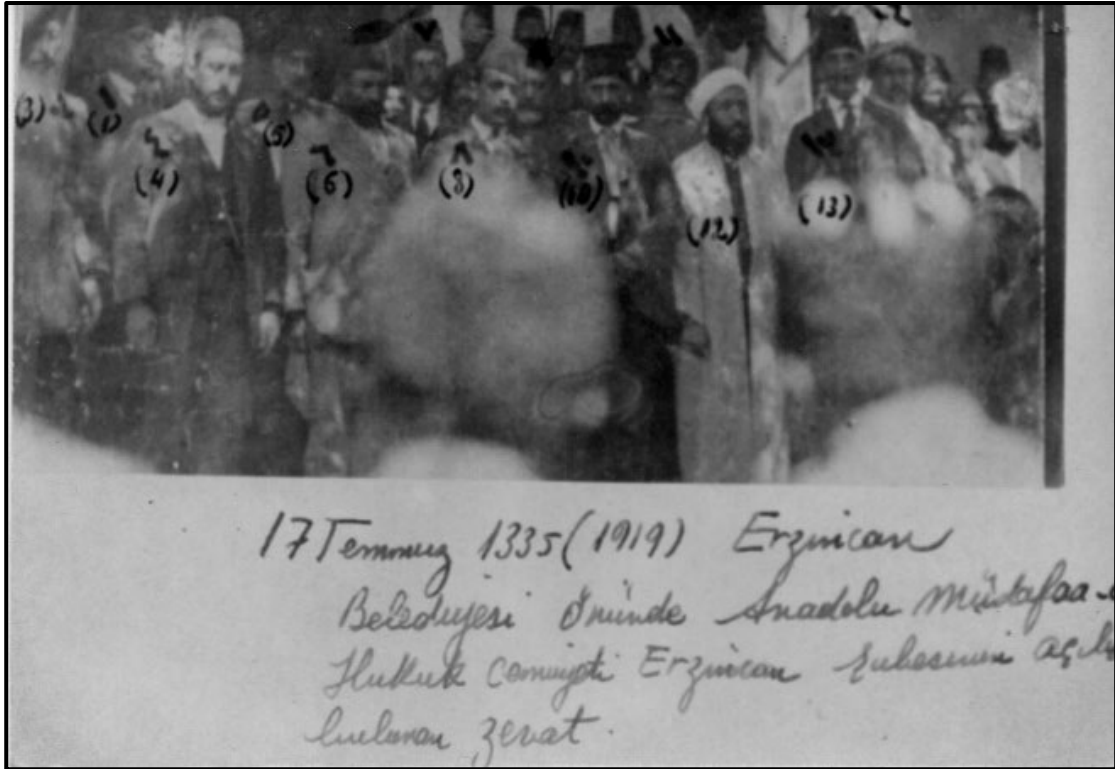 (3) (1) (4) (5) (6) (8) (10) (12) (13)
17 Temmuz 1335 (1919) Erzincan
Belediyesi önünde Anadolu Müdafaa-
Hukuk cemiyeti Erzincan şubesinin açılı
bulunan zevat.